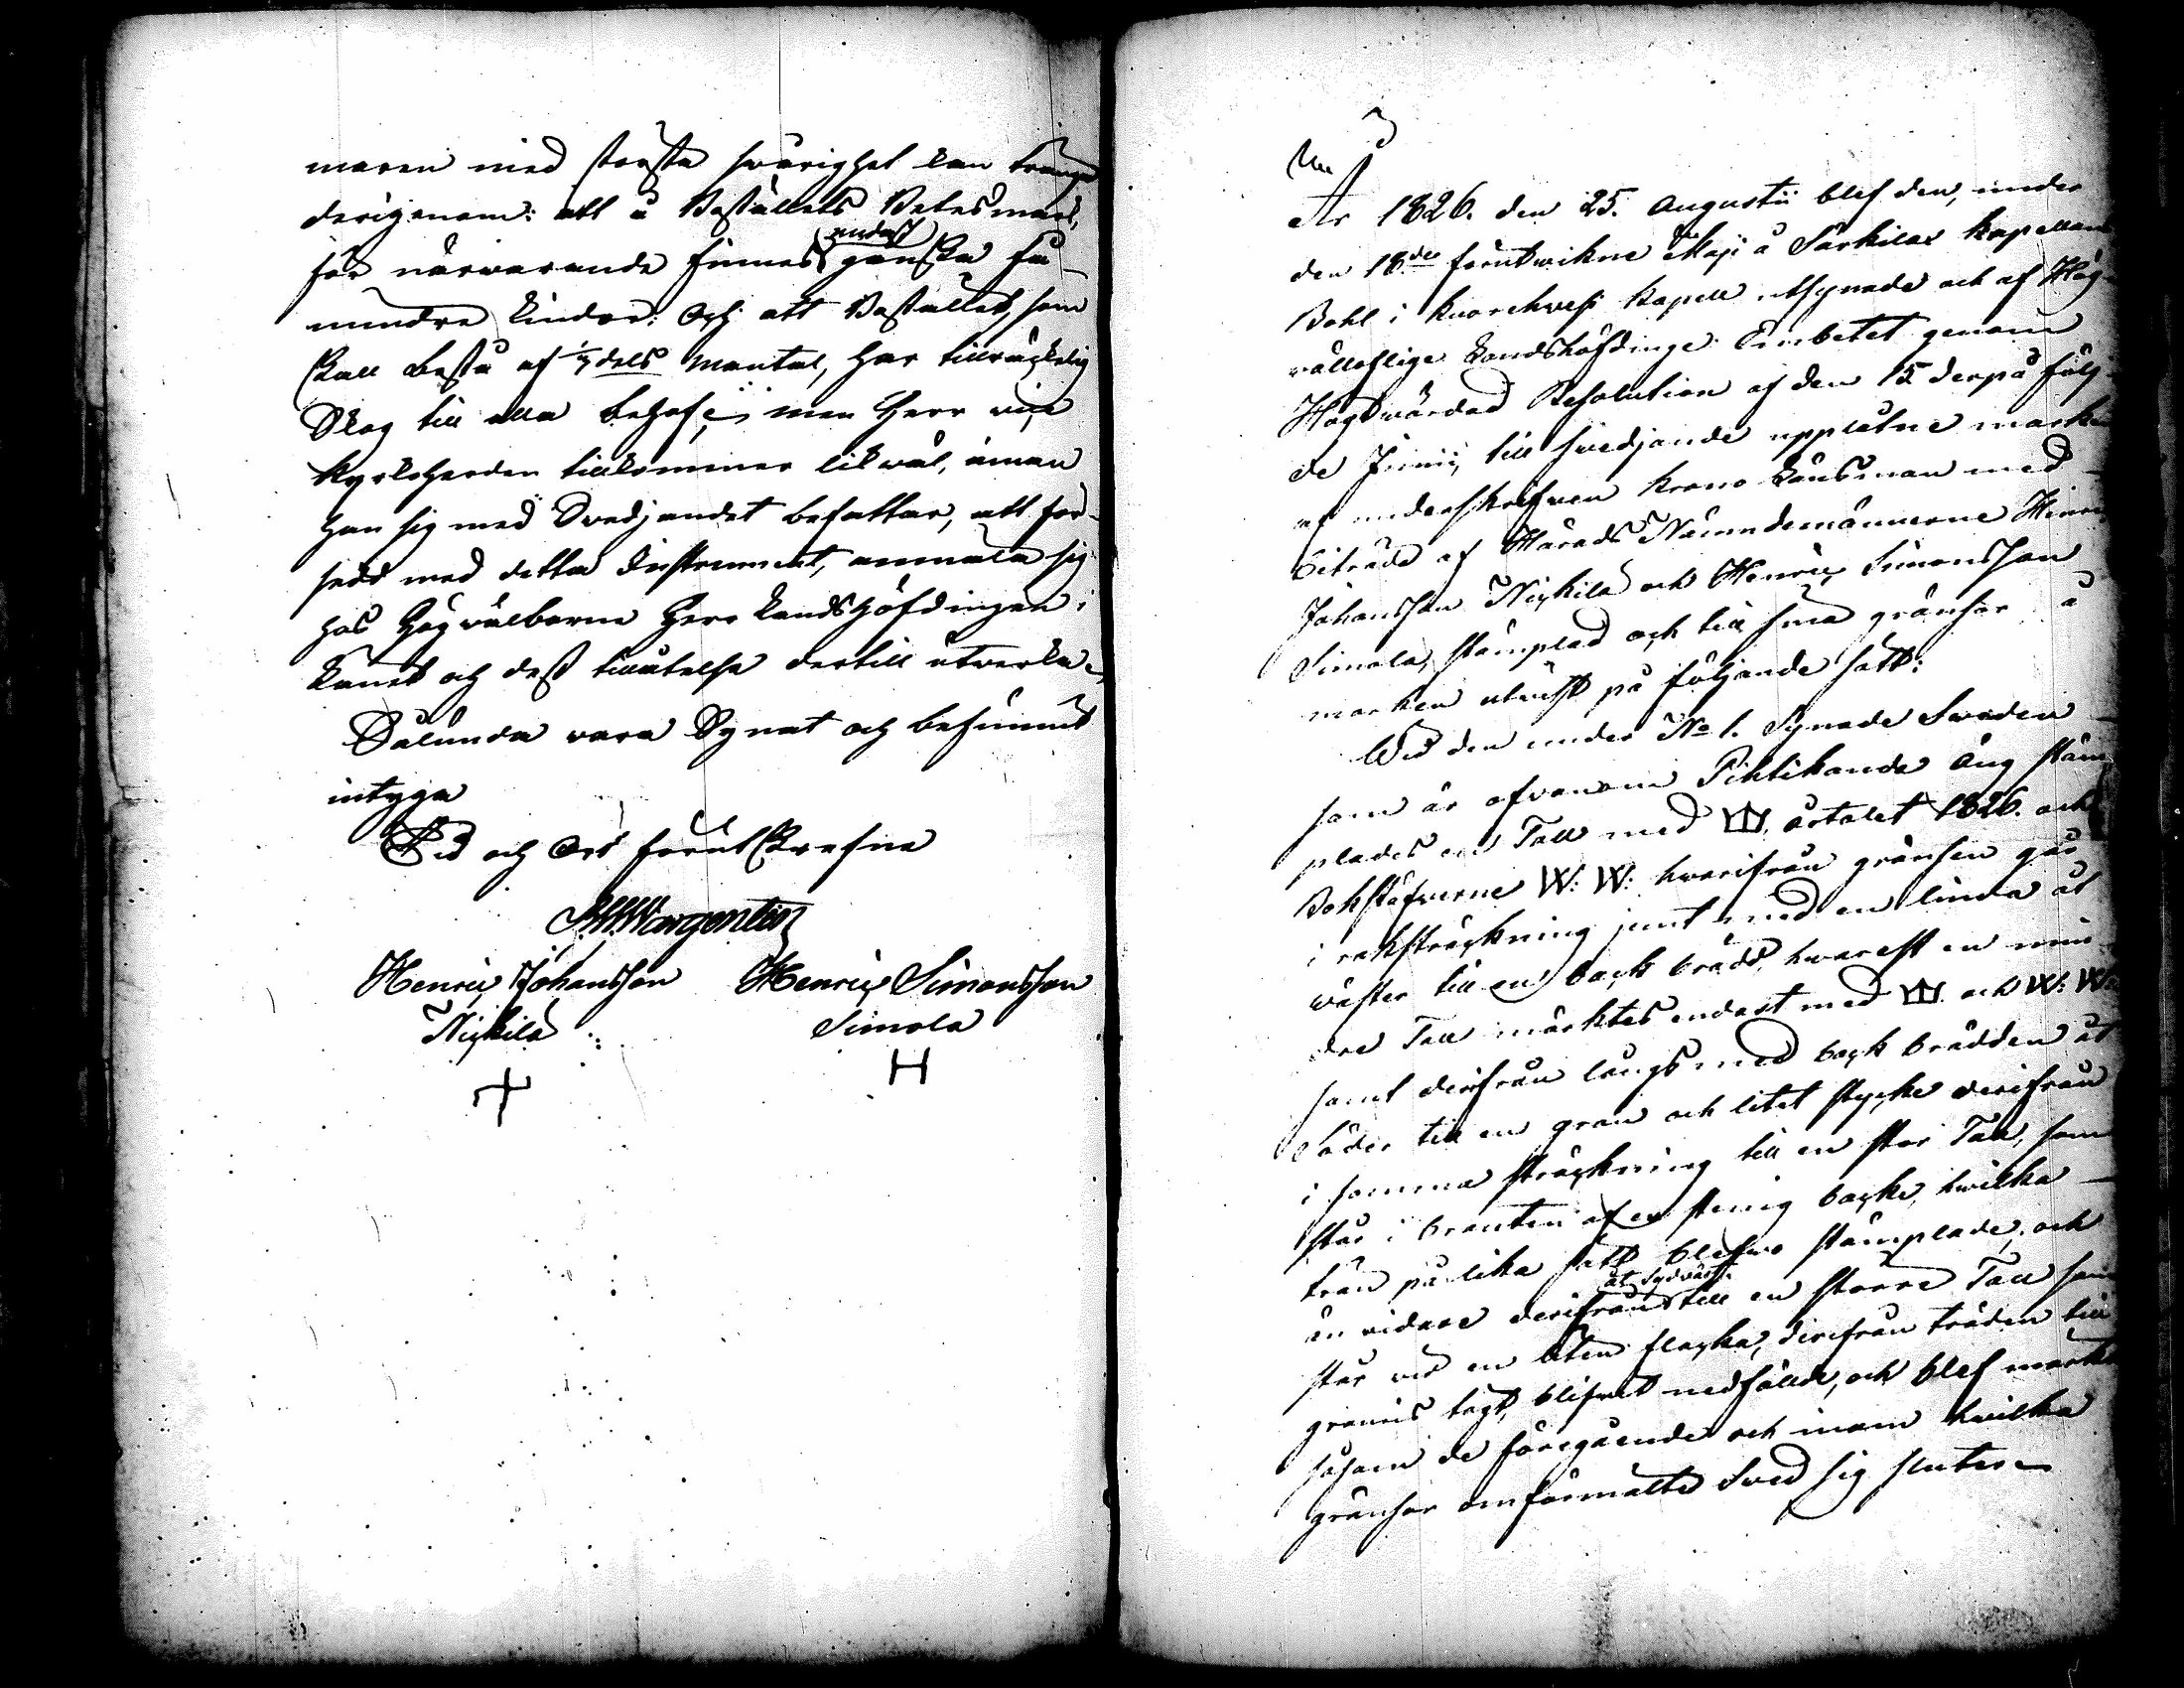 maren med största swårighet kan tränga
derigenom: att å Boställets Betesmark,
för närwarande finnes endast ganska få
mindre lindor: Och att Bostället, som
skall bestå af dels mantal, har tillräckelig
Skog till alla behof; men Herr vice
Kyrkoherden tillkommer likwäl, innan
han sig med Svedjandet befattar, att för-
sedd med detta Instrument, anmäla sig
hos Högwälborne Herr Landshöfdingen i
Länet och dess tillåtelse dertill utverka.
Sålunda vara Synat och befunnit
intyga
Tid och Ort förutskrefne
Wargentin
Henric Johansson Henric Simonsson
Nickilä Simola
H
3
År 1826. den 25. Augustii blef den, under
den 18de förutwikne Maji å Särkilax Kapellans
Bohl i Kuorehvesi Kapell utsynade och af Hög-
wällofliga Landshöfdinge Embetet genom
Högtwördad Resolution af den 15 derpå följ-
de Junii, till svedjande upplåtne marken
af underskrifwen Krono Länsman med
biträde af Härads Nämndemännerne Henric
Johansson Nickilä och Henric Simonsson
Simola, stämplad och till sina gränsor å
marken utwist på följande sätt:
Wid den under No 1. Synade Sweden
som är ofvanom Pihtikanda äng stäm-
plades en Tall med årtalet 1826. och
Bokstäfverne W: W: hvarifrån gränsen går
i raksträckning jemt med en linda åt
wäster till en back brädd, hwarest en min-
dre Tall märktes endast med och W: W:
samt derifrån längs med back brädden åt
Söder till en gran och litet stycke derifrån
i samma sträckning till en stor Tall, som
står i branten af en stenig backe, hwilka
trän på lika sätt blefwo stämplade, och
än vidare derifrån åt Sydväst till en större Tall som
står wid en liten flacka, derifrån träden till
gränns tagt, blifwit nedfälde, och blef märkt
såsom de föregående och inom hwilka
gränsor omförmälte Sved sig sluter